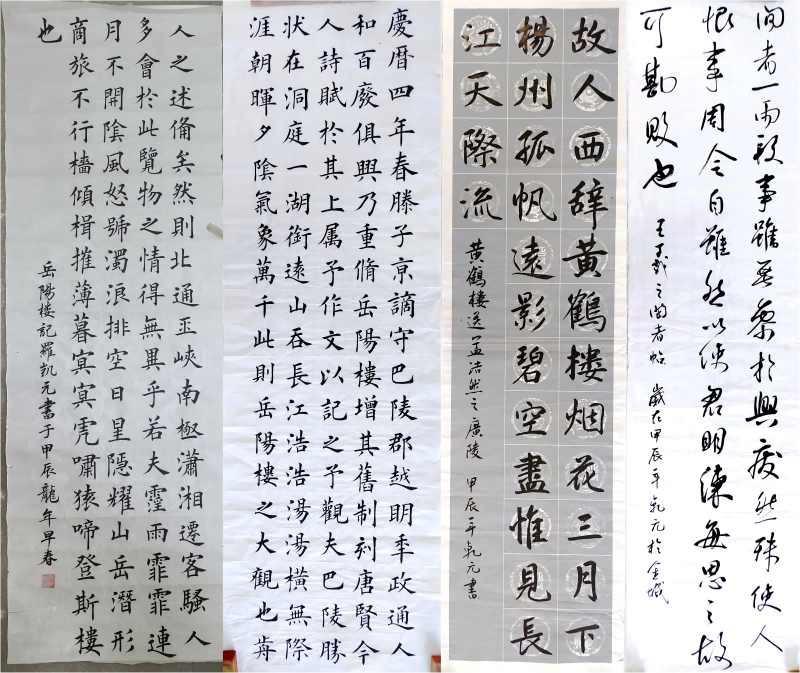 事雖無棄於興廢然殊使人
恨事周令自雖然以使君明練每思之故
可勘敗也
王羲之闊者帖 歲在甲辰年
故人西辞黄鶴樓烟花三月下
楊州孤帆遠影碧空盡惟見長
江天際流
黄鶴樓送孟浩然之廣陵 甲辰年凱元書
慶曆四年春滕子京謫守巴陵郡越明秊政通人
和百廢俱興乃重脩岳陽樓增其舊制刻唐賢今
人詩賦於其上属予作文以記之予觀夫巴陵勝
狀在洞庭一湖銜遠山吞長江浩浩湯湯橫無際
涯朝暉夕陰氣象萬千此則岳陽樓之大觀也歬
人之述俻矣然則北通巫峽南極瀟湘遷客騷人
多會於此覽物之情得無異乎若夫霪雨霏霏連
月不開陰風怒號濁浪排空日星隱耀山岳潛形
商旅不行檣傾楫摧薄暮冥冥虎嘯猿啼登斯樓
也
岳陽楼記羅凱元書于甲辰龍年早春